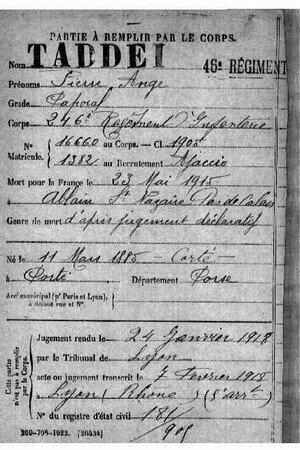 PARTIE À REMPLIR PAR LE CORPS.
Nom TADDEI 46e RÉGIMENT
Prénoms Pierre Ange
Grade Caporal
Corps 246e Régiment d'Infanterie
No 16660 au Corps. — Cl. 1905
Matricule. 1382 au Recrutement Ajaccio
Mort pour la France le 23 Mai 1915
à Ablain St Nazaire Pas de Calais
Genre de mort d'après jugement déclaratif
Né le 11 Mars 1885 — Corté
à Corté Département Corse
Arrt municipal (pr Paris et Lyon),
à défaut rue et No.
Cette partie
n'est pas à remplir
par le Corps.
Jugement rendu le 24 Janvier 1918
par le Tribunal de Lyon
acte ou jugement transcrit le 7 Février 1918
à Lyon (Rhône) (5e arrt)
No du registre d'état civil 181/
905
260-708-1922. [20434]